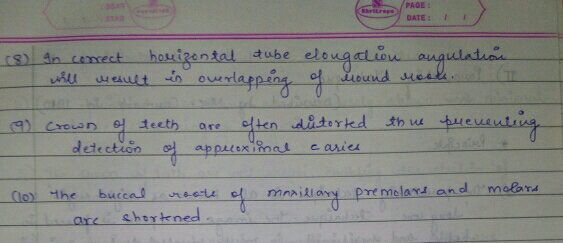 PAGE :
DATE : / /
(8) In correct horizontal tube elongation angulation
will result in overlapping of round roots.
(9) Crown of teeth are often distorted thus preventing
detection of approximal caries
(10) The buccal roots of maxillary premolars and molars
are shortened